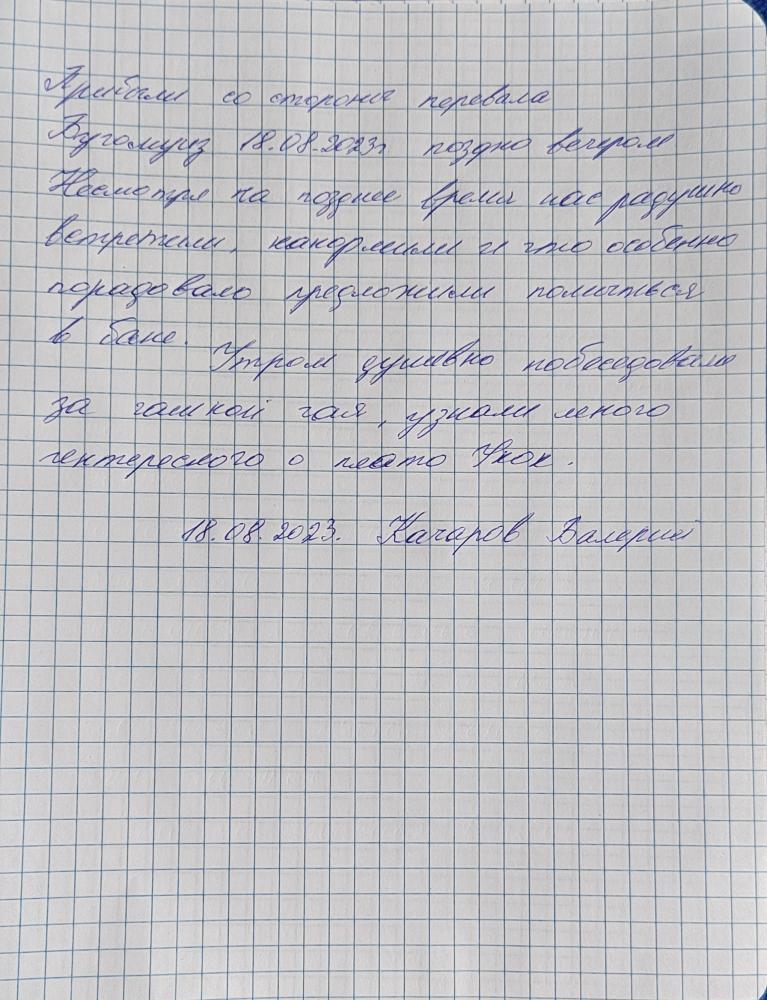 Прибыли со стороны перевала
Бугомуиз 18.08.2023г поздно вечером
Несмотря на позднее время нас радушно
встретили, накормили и что особенно
порадовало предложили помыться
в бане.
Утром душевно побеседовали
за чашкой чая, узнали много
интересного о плато Укок.
18.08.2023. Качаров Валерий